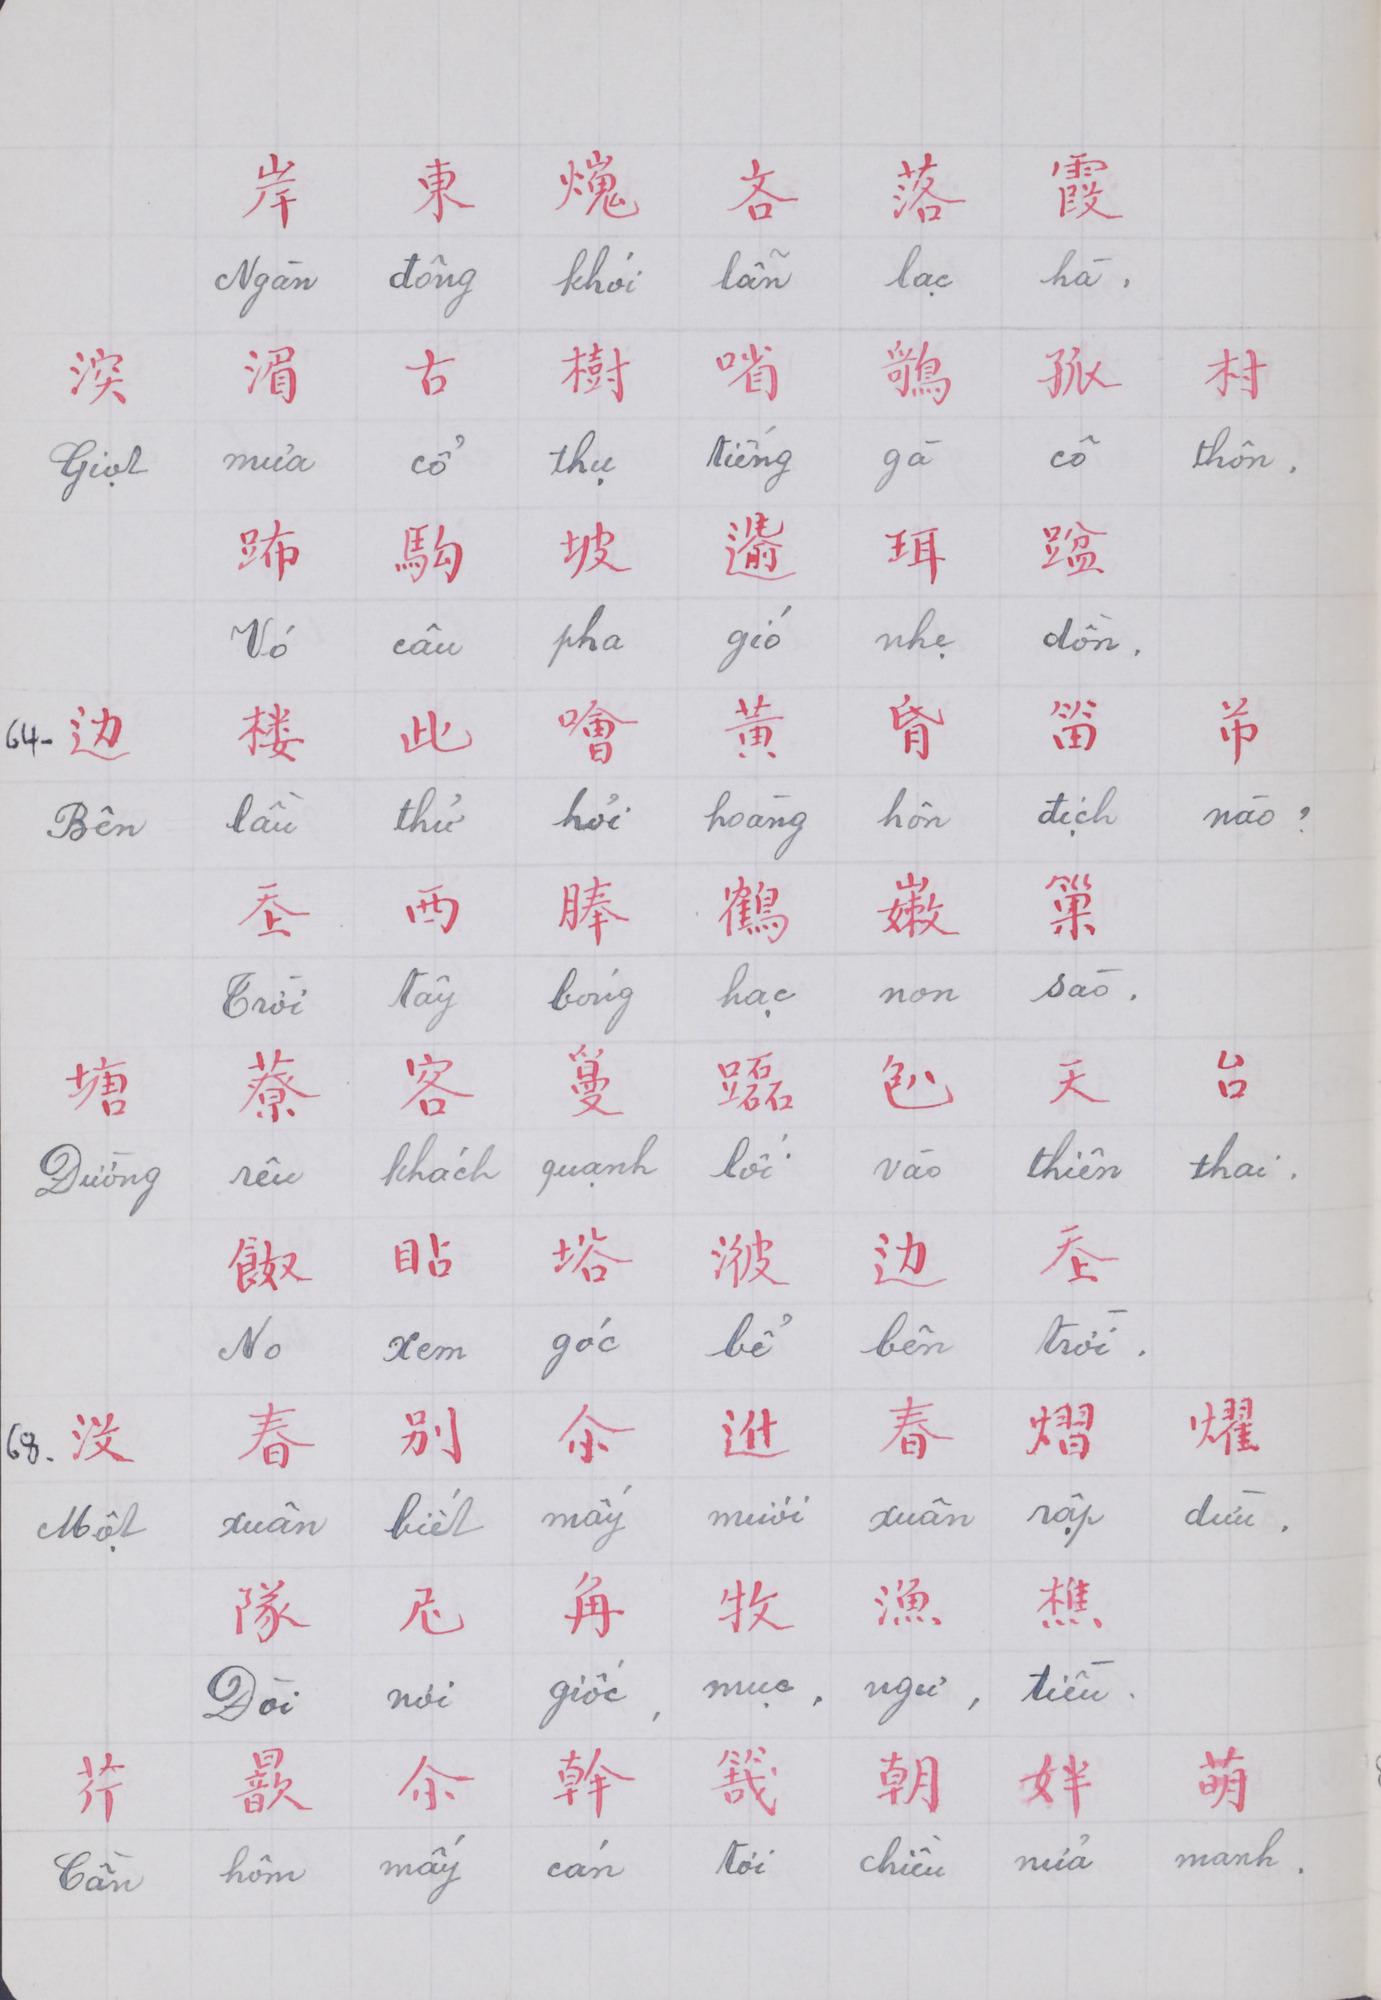 岸 東 㷝 吝 落 霞
Ngàn đông khói lẫn lạc hà.
湥 湄 古 樹 㗂 鵸 孤 村
Giọt mưa cổ thụ tiếng gà cô thôn.
𨁟 駒 坡 珥
Vó câu pha gió nhẹ dồn.
64- 边 楼 此 噲 黄 昏 笛 芇
Bên lầu thử hỏi hoàng hôn địch nào?
𡗶 西 䏾 鶴 𡽫 箫
Trời tây bóng hạc non sào.
塘 藔 客 天 台
Đường rêu khách quạnh lối vào thiên thai.
貼 塔 㴜 边 𡗶
No xem góc bể bên trời.
68. 没 春 别 尒 𨑮 春 熠 燿
Một xuân biết mấy mươi xuân rập dìu.
隊 尼 角 牧 漁 樵
Đòi nơi giốc, mục, ngư, tiều.
芹 歆 尒 幹 朝 姅 萌
Cần hôm mấy cán tơi chiều nửa manh.